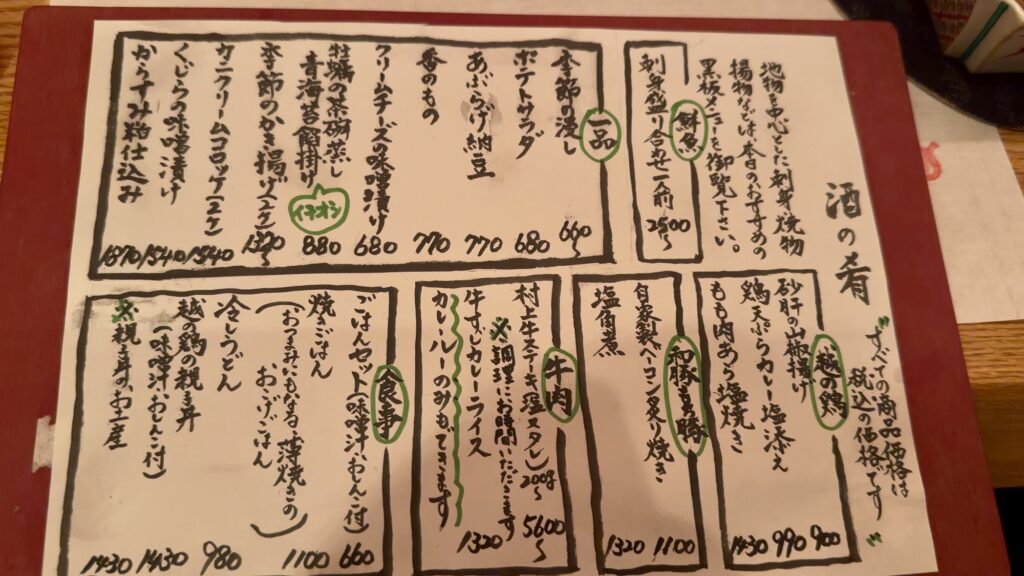 酒の肴
すべての商品価格は
税込の価格です
地物を中心とした刺身焼物
揚物などは本日のおすすめの
黒板メニューを御覧下さい。
鮮魚
刺身盛り合わせ一人前 2500〜
一品
季節の浸し 660〜
ポテトサラダ 680
あぶらげ納豆 770
香のもの 770
クリームチーズの味噌漬け 680
牡蠣の茶碗蒸し
青海苔餡掛け 880
イチオシ
季節のかき揚げ(2ケ) 1320〜
カニクリームコロッケ(2ケ) 1540
くじらの味噌漬け 1540
からすみ粕仕込み 1870
越の鶏
砂肝の山椒揚げ 900
鶏天ぷらカレー塩添え 990
もも肉あら塩焼き 1430
和豚もち豚
自家製ベーコン炙り焼き 1100
塩角煮 1320
牛肉
村上牛ステーキ(塩、スタレ)200g〜 5600〜
※調理にお時間いただきます
牛すじカレーライス 1320
カレールーのみもできます
食事
ごはんセット(味噌汁、おしんこ付) 660
焼きごはん 1100
(おつまみにもなる薄焼きの
おこげごはん)
冷しうどん 980
越の鶏の親子丼 1430
(味噌汁、おしんこ付)
※親子丼のお土産 1430